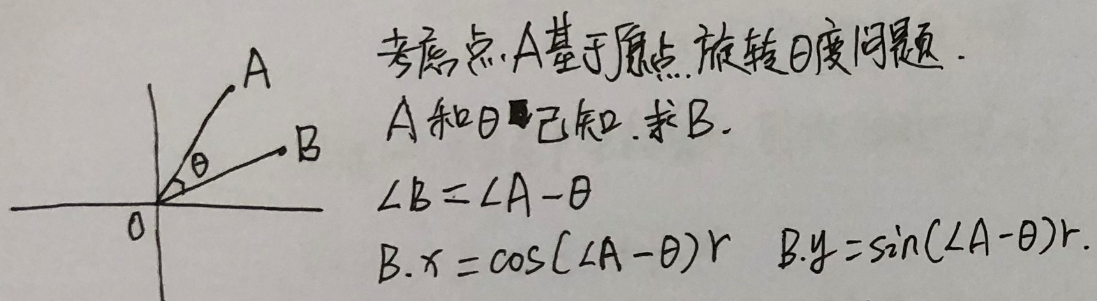 考虑点A基于原点旋转θ度问题.
A和θ已知.求B.
∠B=∠A-θ
B.x=cos(∠A-θ)r B.y=sin(∠A-θ)r.
A
B
θ
O